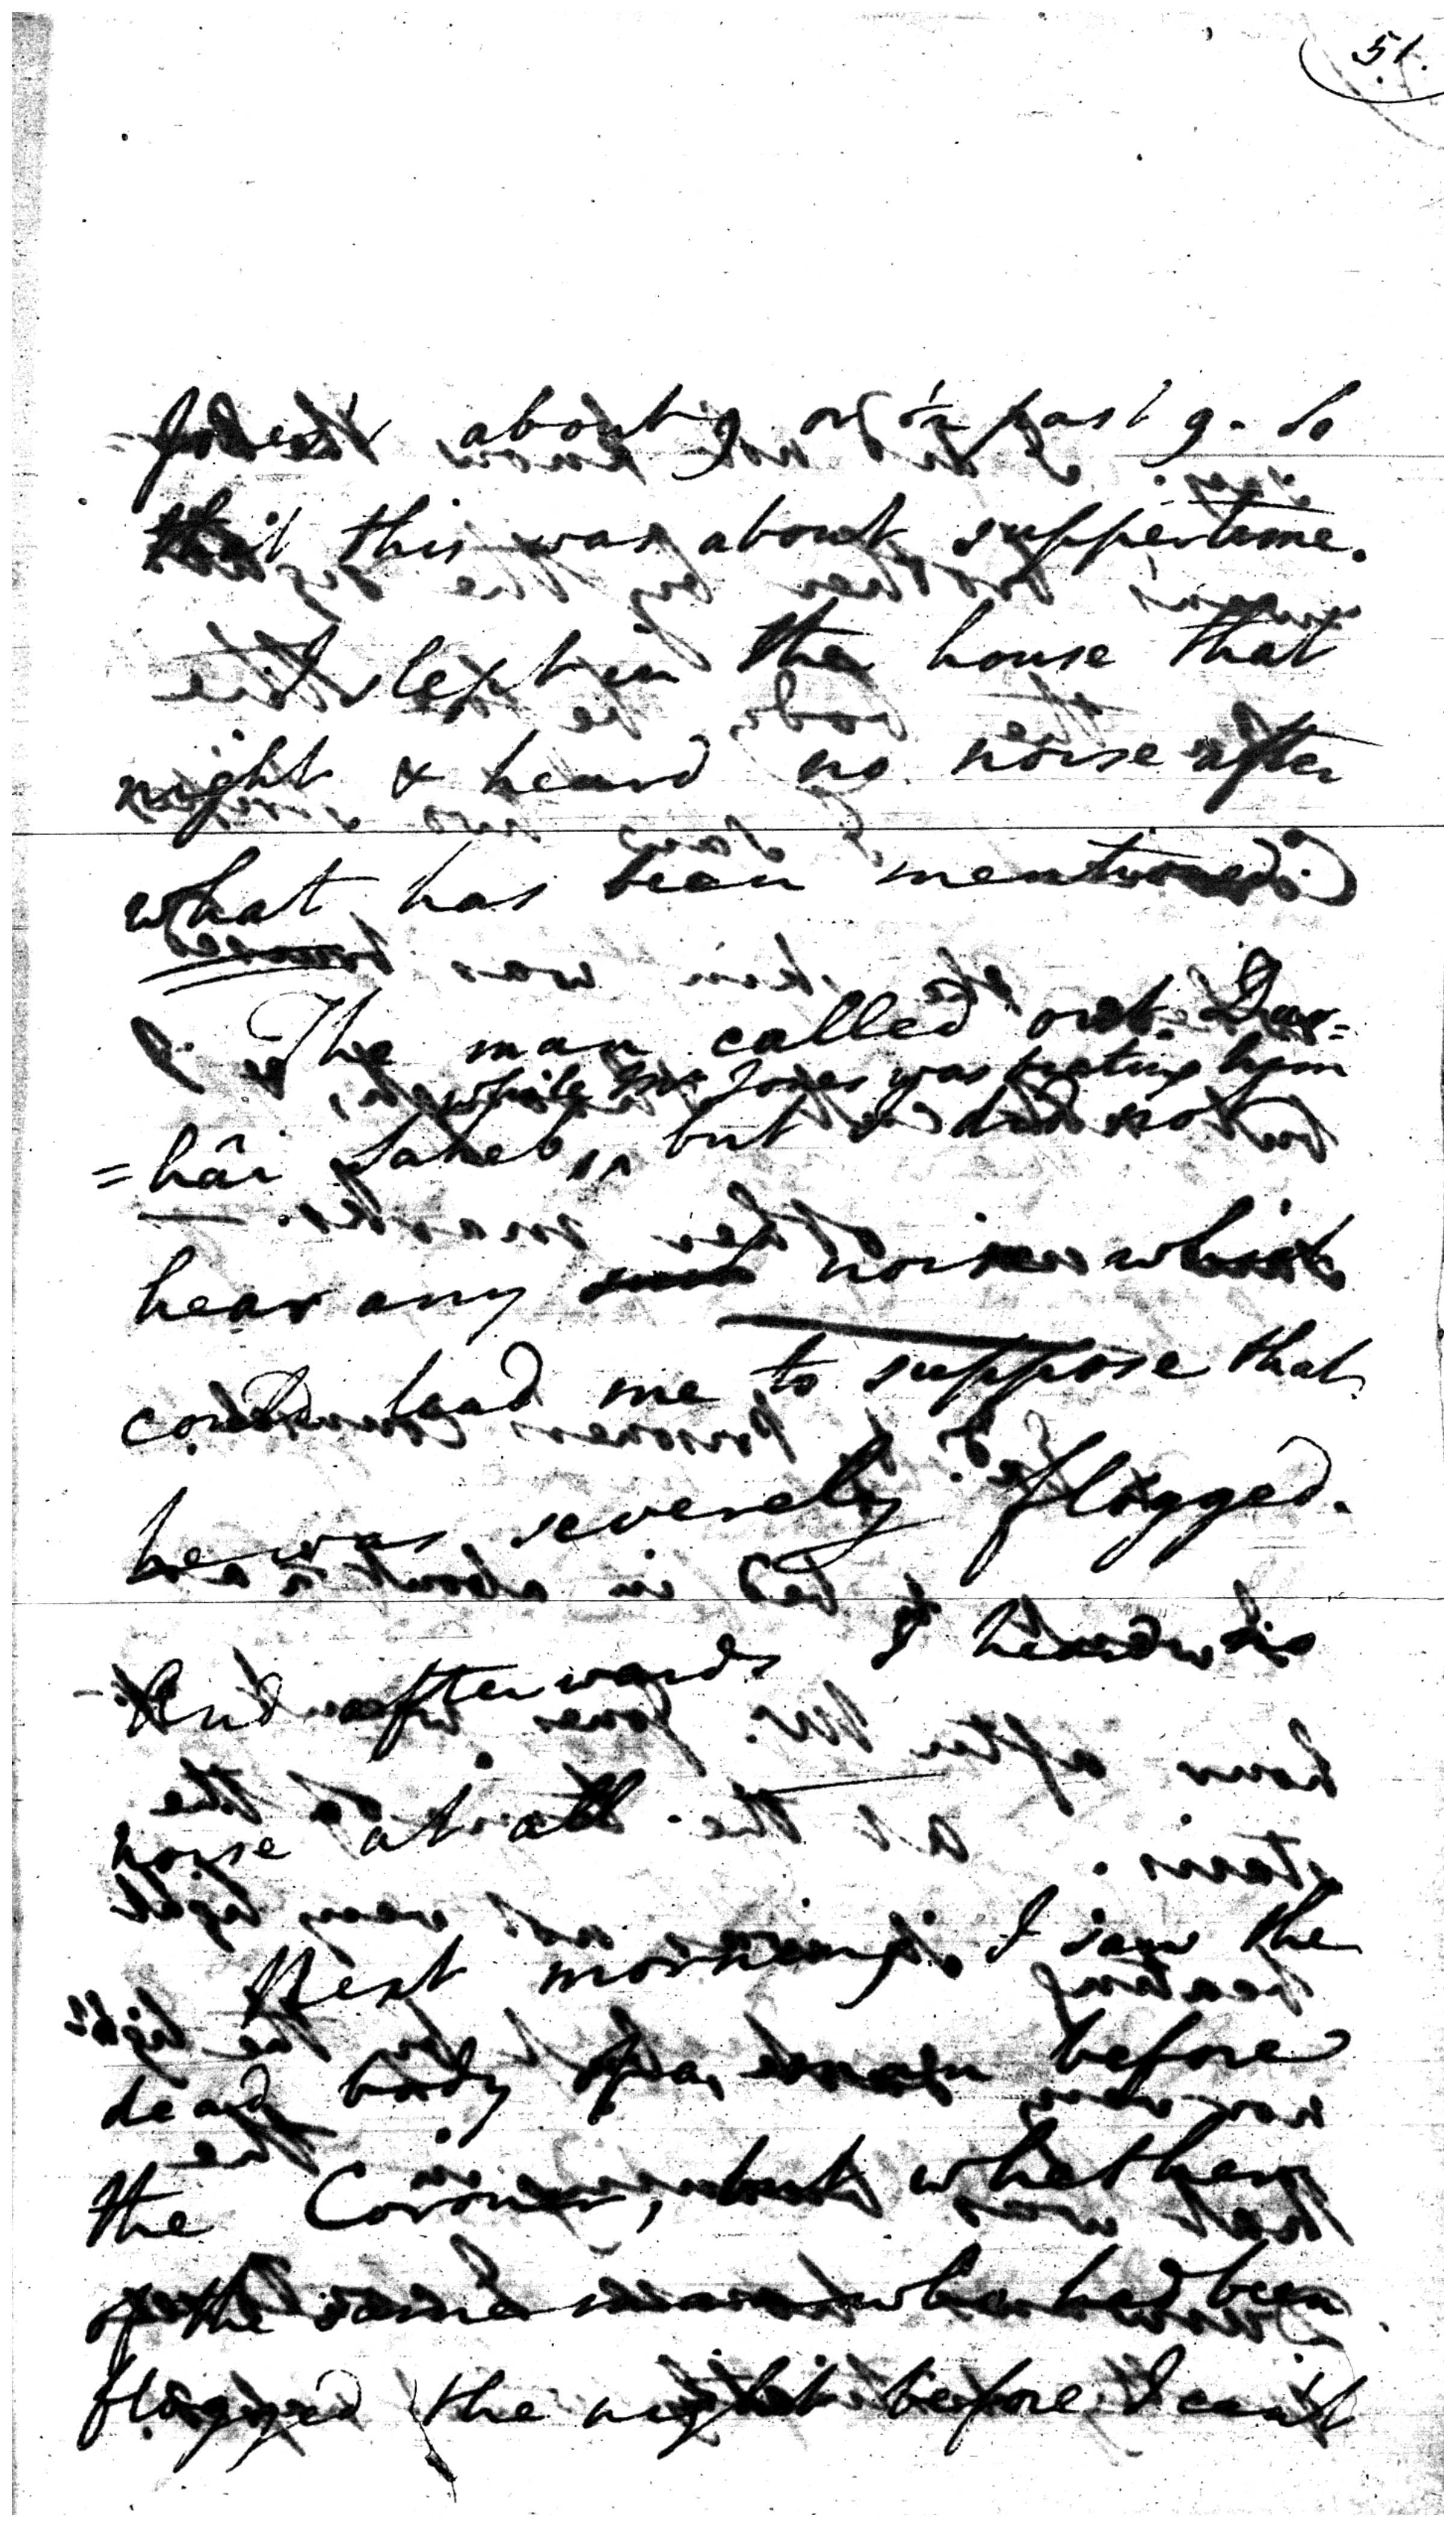 51.
about 9 or ½ past 9. So
that this was about suppertime.
I slept in the house that
night & heard no noise after
what has been mentioned.
The man called out Dur=
while Mr Jones was beating him
=hâi Saheb, but I did not
hear any such noise which
could lead me to suppose that
he was severely flogged.
And afterwards I heard no
noise at all.
Next morning I saw the
dead body of a man before
the Coroner, but whether
of the same man who had been
flogged the night before I can't